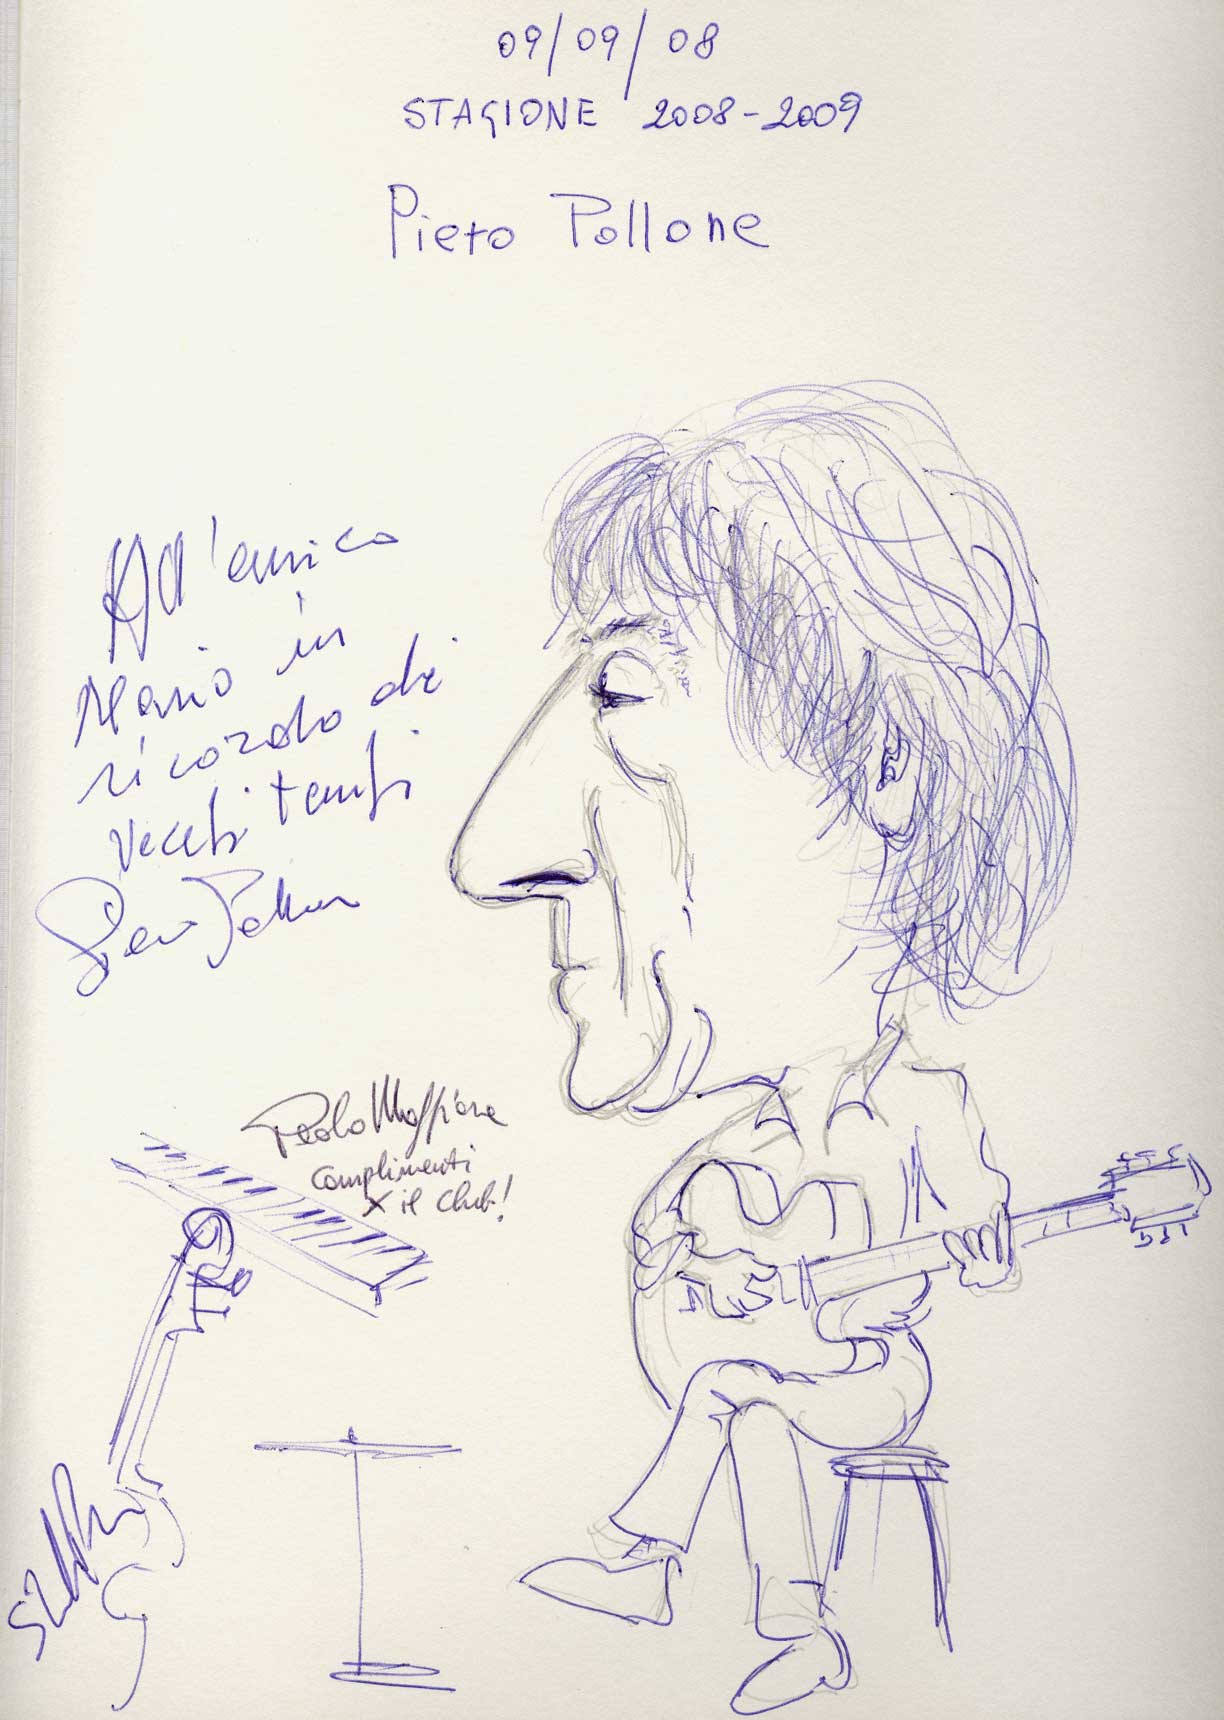 09/09/08
STAGIONE 2008-2009
Piero Pollone
All'amico
Mario in
ricordo di
vecchi tempi
Piero Pollone
Paolo Maffiore
complimenti
x il club!